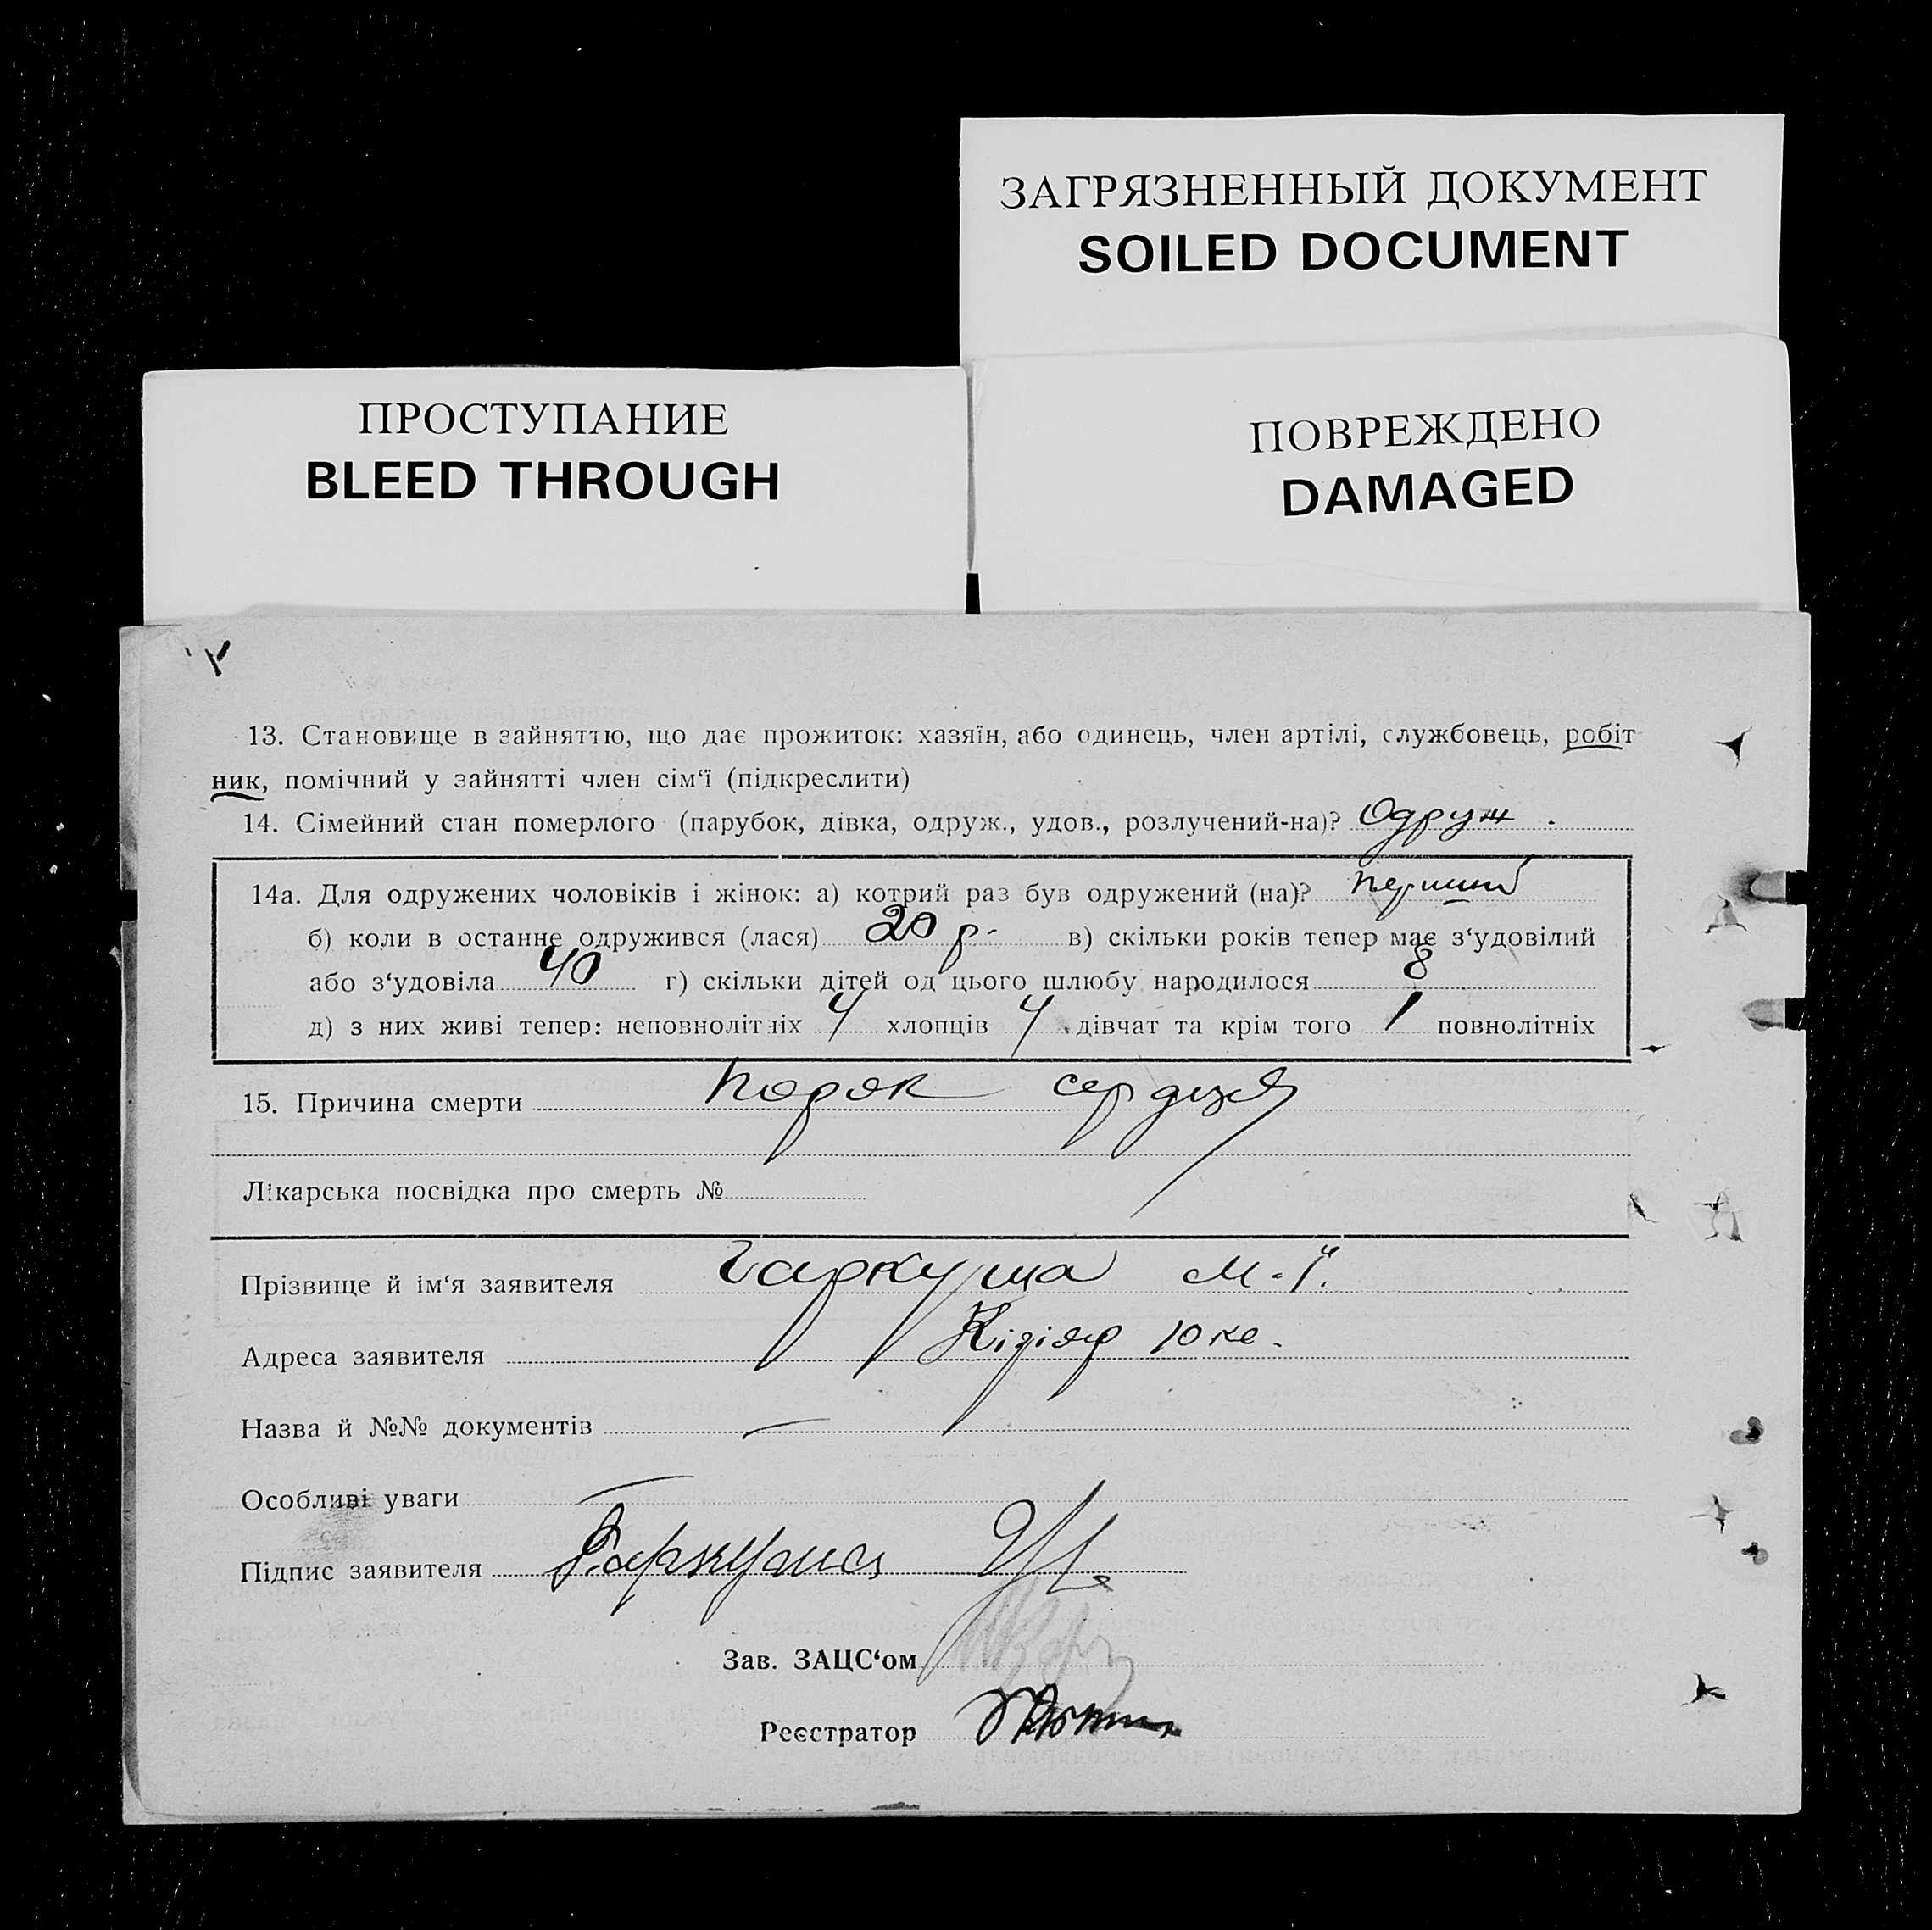 ЗАГРЯЗНЕННЫЙ ДОКУМЕНТ
SOILED DOCUMENT
ПРОСТУПАНИЕ
BLEED THROUGH
ПОВРЕЖДЕНО
DAMAGED
13. Становище в зайняттю, що дає прожиток: хазяїн, або одинець, член артілі, службовець, робіт
ник, помічний у зайнятті член сім‘ї (підкреслити)
14. Сімейний стан померлого (парубок, дівка, одруж., удов., розлучений-на)? Одруж.
14а. Для одружених чоловіків і жінок: а) котрий раз був одружений (на)? перший
б) коли в останне одружився (лася) 20 р. в) скільки років тепер має з‘удовілий
або з‘удовіла 40 г) скільки дітей од цього шлюбу народилося 8
д) з них живі тепер: неповнолітніх 4 хлопців 4 дівчат та крім того 1 повнолітніх
15. Причина смерти порок сердця
Лікарська посвідка про смерть №
Прізвище й ім‘я заявителя Гаркуша М. Й.
Адреса заявителя
Назва й №№ документів —
Особливі уваги —
Підпис заявителя Гаркуша
Зав. ЗАЦС‘ом
Реєстратор